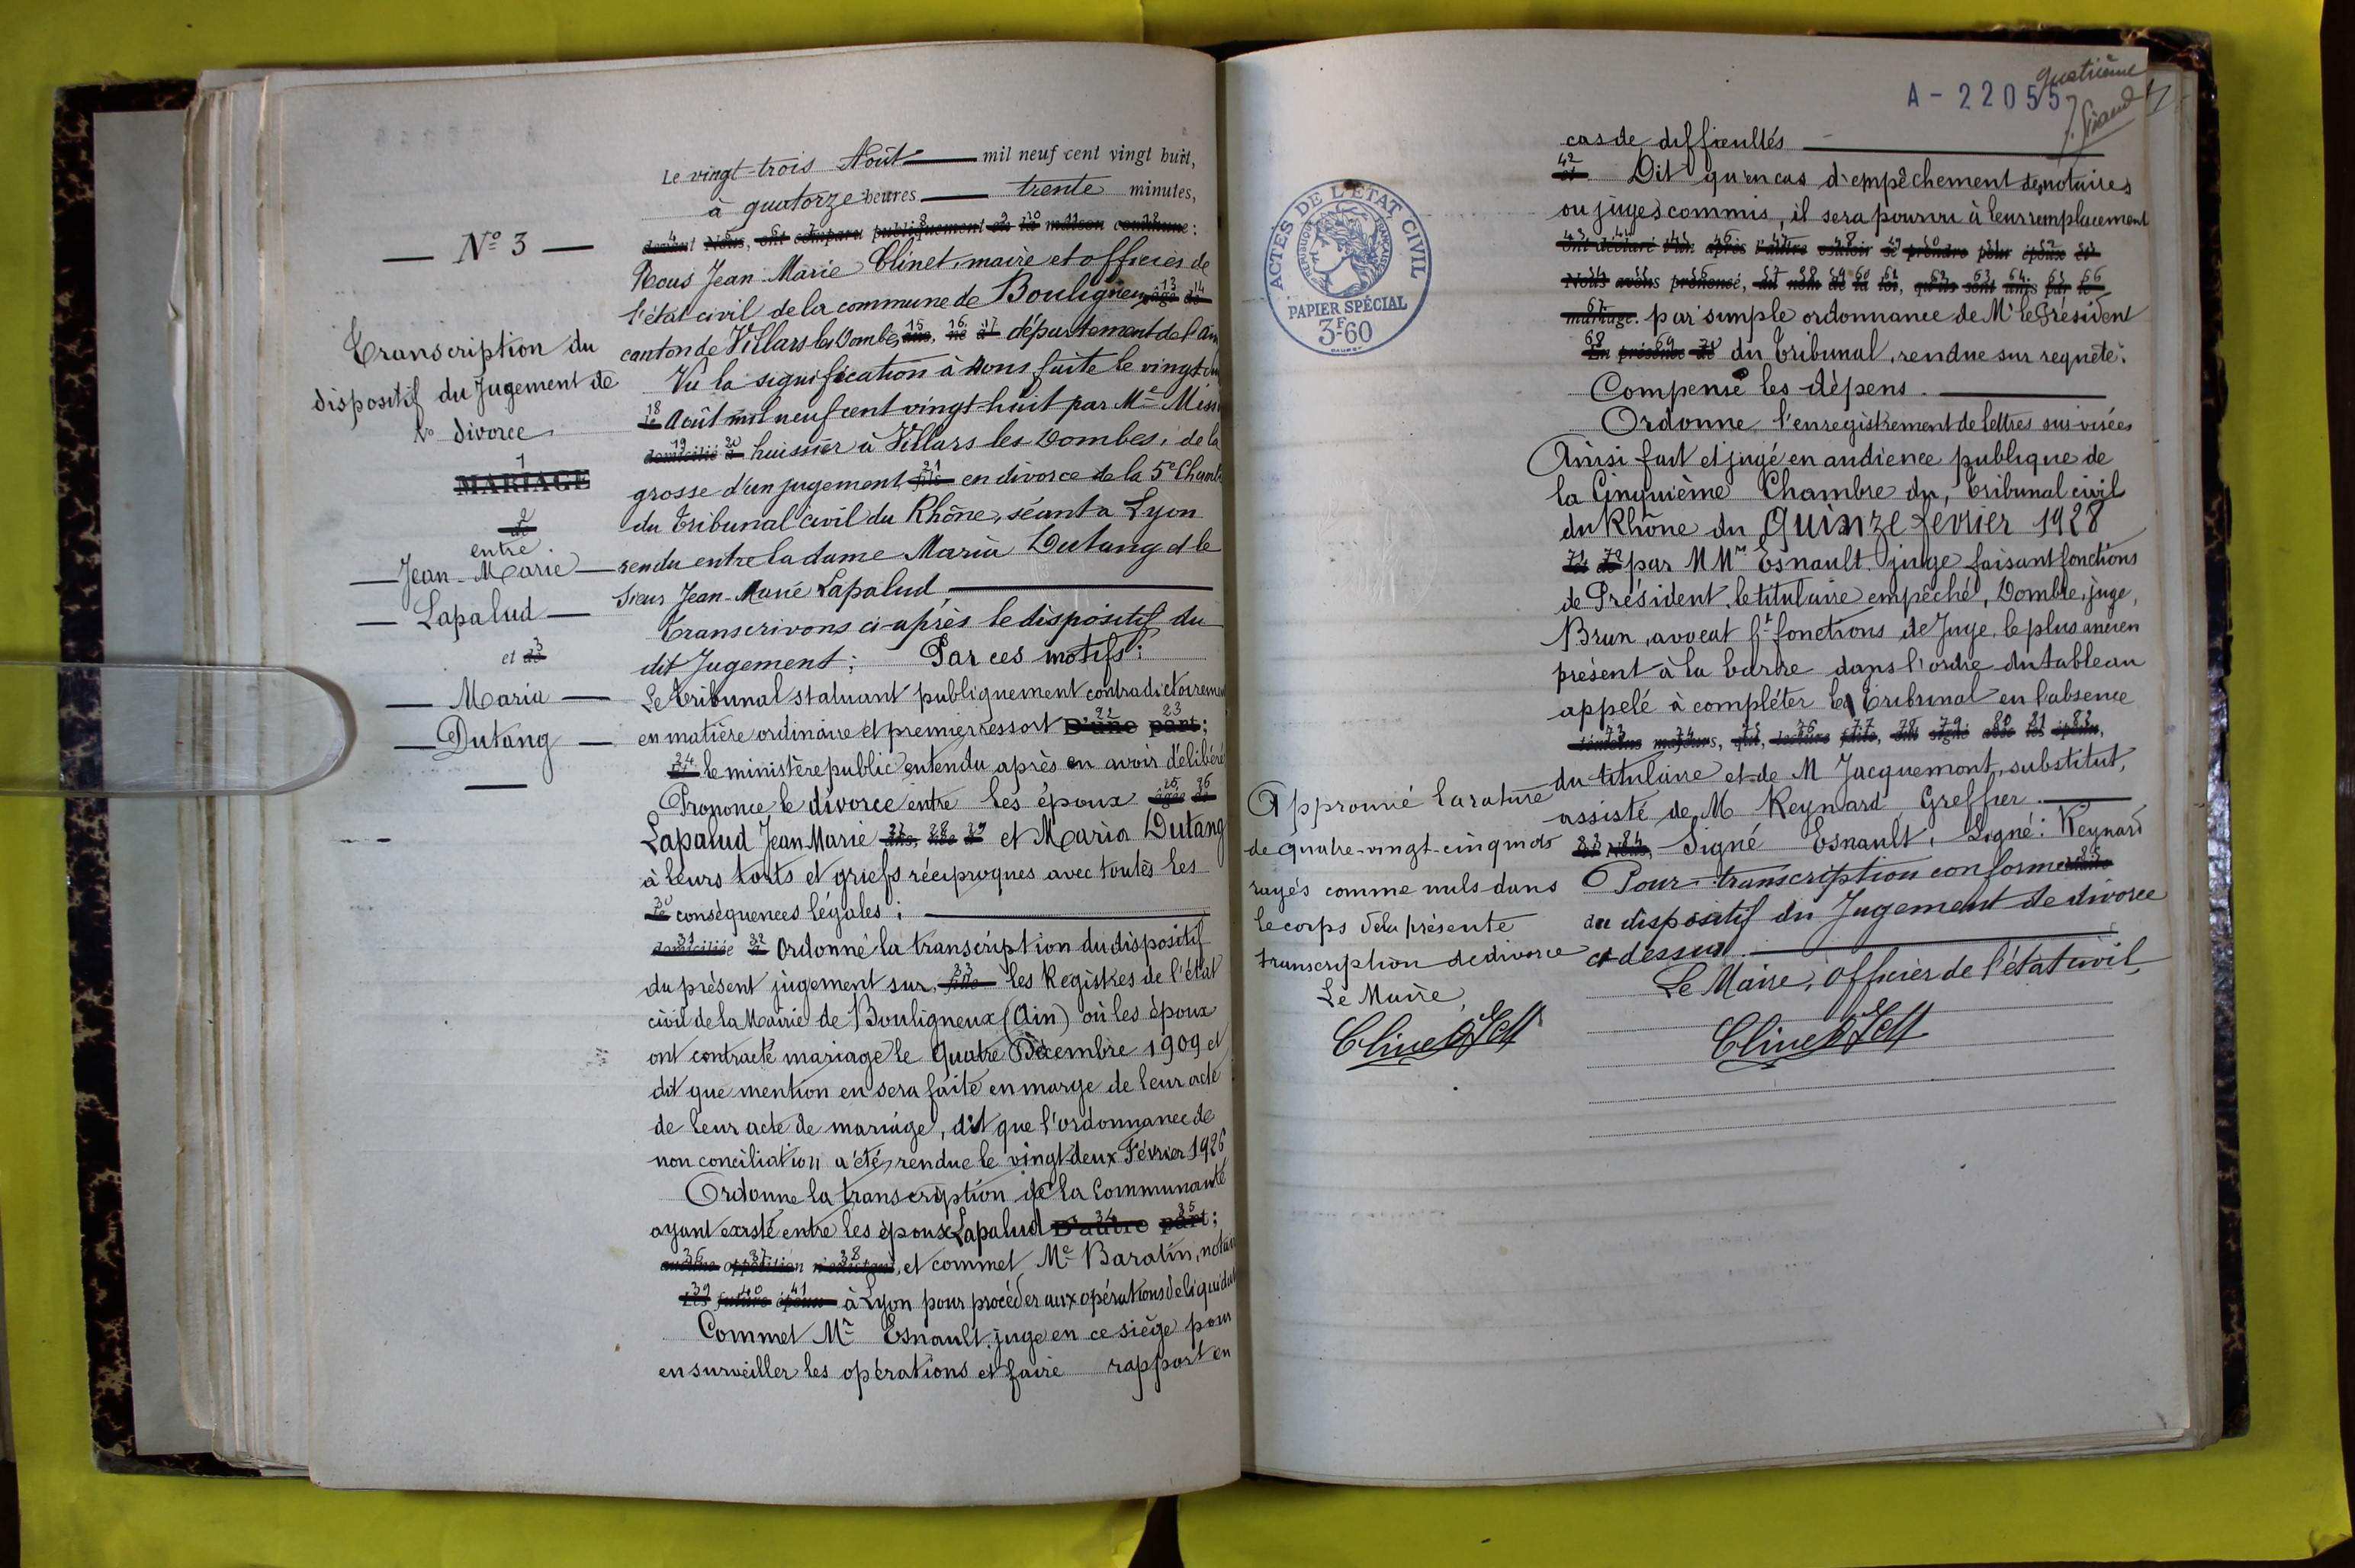 — N° 3 —
Transcription du
dispositif du Jugement de
divorce
MARIAGE
de
entre
— Jean-Marie —
— Lapalud —
et de
— Maria —
— Dutang —
Le vingt-trois Août — mil neuf cent vingt huit,
à quatorze heures — trente minutes,
devant Nous, ont comparu publiquement en la maison commune :
Nous Jean-Marie Clinet, maire et officier de
l'état civil de la commune de Bouligneux âgé de
canton de Villars les Dombes ans, né à département de l'Ain
Vu la signification à nous faite le vingt
le Août mil neuf cent vingt-huit par Me
domicilié à huissier à Villars les Dombes, de la
grosse d'un jugement fils en divorce de la 5e
du Tribunal civil du Rhône, séant à Lyon
rendu entre la dame Maria Dutang et le
sieur Jean-Marie Lapalud, —
Transcrivons ci-après le dispositif du
dit Jugement : Par ces motifs :
Le Tribunal statuant publiquement contradictoirement
en matière ordinaire et premier ressort D'une part ;
Et le ministère public entendu après en avoir délibéré
Prononce le divorce entre les époux âgée de
Lapalud Jean Marie ans, née à et Maria Dutang
à leurs torts et griefs réciproques avec toutes les
le conséquences légales ; —
domiciliée à Ordonne la transcription du dispositif
du présent jugement sur fille les Registres de l'état
civil de la Mairie de Bouligneux (Ain) où les époux
ont contracté mariage le Quatre Décembre 1909 et
dit que mention en sera faite en marge de leur acte
de leur acte de mariage, dit que l'ordonnance de
non conciliation a été rendue le vingt deux Février 1926
Ordonne la transcription de la Communauté
ayant existé entre les époux Lapalud D'autre part ;
aucune opposition n'existant, et commet Me Baratin, notaire
Les futurs époux à Lyon pour procéder aux opérations de
Commet Mr Esnault, juge en ce siège pour
en surveiller les opérations et faire rapport en
A-22055
quatrième
ACTES DE L'ÉTAT CIVIL
RÉPUBLIQUE FRANÇAISE
PAPIER SPÉCIAL
3F-60
cas de difficultés —
et Dit qu'en cas d'empêchement de notaires
ou juges commis, il sera pourvu à leur remplacement
ont déclaré l'un après l'autre vouloir se prendre pour époux et
Nous avons prononcé, au nom de la loi, qu'ils sont unis par le
mariage. par simple ordonnance de Mr le Président
En présence de du Tribunal, rendue sur requête.
Compense les dépens. —
Ordonne l'enregistrement de lettres sus-visées
Ainsi fait et jugé en audience publique de
la Cinquième Chambre du Tribunal civil
du Rhône du Quinze février 1928
et de par MMrs Esnault, juge faisant fonctions
de Président, le titulaire empêché, Dombre, juge,
Brun, avocat ft fonctions de Juge, le plus ancien
présent à la barre dans l'ordre du tableau
appelé à compléter le Tribunal en l'absence
témoins majeurs, qui, lecture faite, ont signé avec les époux,
du titulaire et de M Jacquemont, substitut,
assisté de M Reynard, Greffier. —
et Nous, Signé Esnault, Signé : Reynard
Pour transcription conforme
du dispositif du Jugement de divorce
ci-dessus. —
Le Maire, Officier de l'état civil,
Clinet
Approuvé la rature
de quatre-vingt-cinq mots
rayés comme nuls dans
le corps de la présente
transcription de divorce
Le Maire,
Clinet